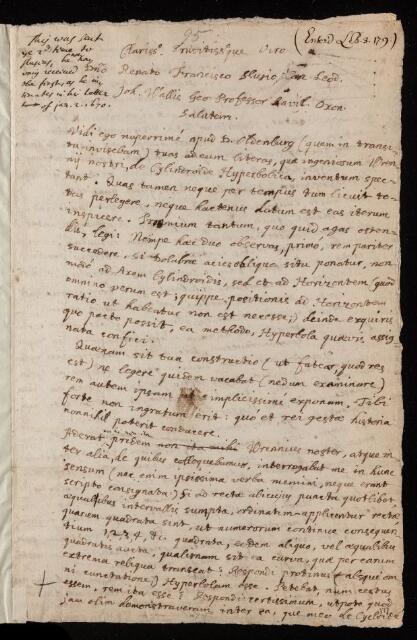 This was sent
ye 2d time to
Slusius, he hav-
ing received
the first, as he in-
timates in his letter
of jan. 2. 1670.
95
(Enterd LB. 3. 179)
Clariss. Eruditissque Viro
Renato Francisco Slusio, Can. Leod.
Joh. Wallis Geo. Professor Savil. Oxon.
Salutem.
Vidi ego nuperrime apud D. Oldenburg (quem in transi-
tu invisebam) tuas ad eum literas, quae ingeniosum Wren-
nij nostri, de Cylindroide Hyperbolica, inventum spec-
tant. Quas tamen neque per tempus tum licuit to-
tas perlegere, neque hactenus datum est eas iterum
inspicere. Initium tantum, quo quid agas osten-
dis, legi: Nempe haec duo observas, primo, rem pariter
succedere, si dolabrae acies obliquo situ ponatur, non
modo ad Axem Cylindroidis, sed et ad Horizontem (quod
omnino verum est; quippe, positionis ad Horizontem
ratio ut habeatur non est necesse;) deinde exquiris
quo pacto possit, ea methodo, Hyperbola quaevis assig-
nata confici.
Quaenam sit tua constructio (ut fatear, quod res
est) ne legere quidem vacabat (nedum examinare)
rem autem ipsam implicissimi exponam. Tibi
forte non ingratum erit: quo et rei gestae historia
nonnihil poterit conducere.
Aderat pridem non ita mihi Wrennius noster, atque in-
ter alia, de quibus colloquebamur, interrogabat me in hunc
sensum (nec enim ipsissima verba memini, neque erant
scripto consignata:) Si ad rectae alicujus puncta quotlibet,
aequalibus intervallis sumpta, ordinatim-applicentur rectae
quarum quadrata sint, ut numerorum continue consequen-
tium 1, 2, 3, 4, &c. quadrata, eodem aliquo, vel aequalibus
quadratis aucta: qualisnam sit ea curva, quae per earum
extrema reliqua transeat? Respondi protinus (absque om-
ni cunctatione) Hyperbolam esse. Petebat, num certus
essem, rem ita esse? Respondi certissimum, utpote quod
jam olim demonstraveram inter ea, quae meo de Cycloide